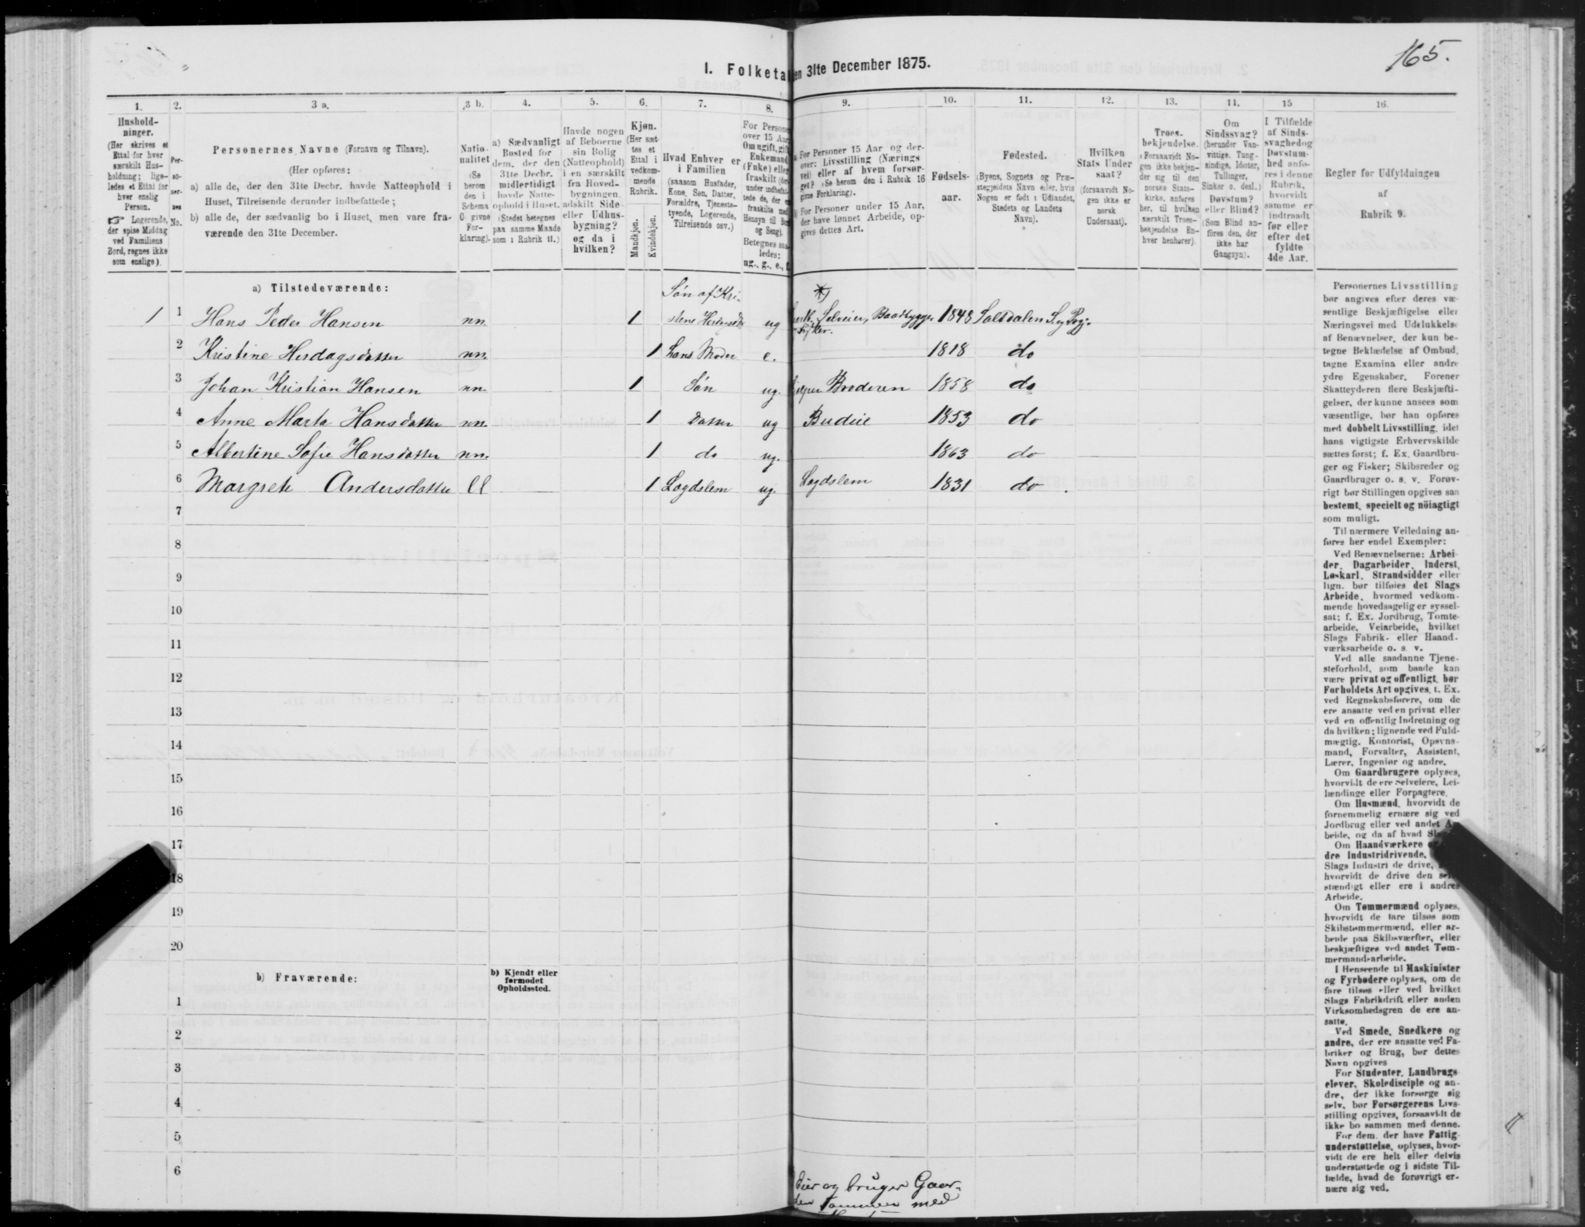 165.
I. Folketa en 31te December 1875.
1. 2. 3 a. 3 b. 4. 5. 6. 7. 8. 9. 10. 11. 12. 13. 14. 15 16.
Hushold-
ninger.
(Her skrives et
Ettal for hver
særskilt Hus-
holdning; lige-
ledes et Ettal for
hver enslig
Person.
☞ Logerende,
der spise Middag
ved Familiens
Bord, regnes ikke
som enslige).
Per-
so-
ner-
nes
No.
Personernes Navne (Fornavn og Tilnavn).
(Her opføres:
a) alle de, der den 31te Decbr. havde Natteophold i
Huset, Tilreisende derunder indbefattede;
b) alle de, der sædvanlig bo i Huset, men vare fra-
værende den 31te December.
Natio-
nalitet
(Se
herom
den i
Schema
0 givne
For-
klaring).
a) Sædvanligt
Bosted for
dem, der den
31te Decbr.
midlertidigt
havde Natte-
ophold i Huset.
(Stedet betegnes
paa samme Maade
som i Rubrik 11.)
Havde nogen
af Beboerne
sin Bolig
(Natteophold)
i en særskilt
fra Hoved-
bygningen
adskilt Side-
eller Udhus-
bygning?
og da i
hvilken?
Kjøn.
(Her sæt-
tes et
Ettal i
vedkom-
mende
Rubrik.
Mandkjøn.
Kvindekjøn.
Hvad Enhver er
i Familien
(saasom Husfader,
Kone, Søn, Datter,
Forældre, Tjeneste-
tyende, Logerende,
Tilreisende osv.)
For Persone
over 15 Aar
Om ugift, gift
Enkemand
(Enke) eller
fraskilt
Betegnes saa-
ledes:
ug., g., e., f.
For Personer 15 Aar og der-
over: Livsstilling (Nærings
vei) eller af hvem forsør-
get? (Se herom den i Rubrik 16
givne Forklaring).
For Personer under 15 Aar,
der have lønnet Arbeide, op-
gives dettes Art.
Fødsels-
aar.
Fødested.
(Byens, Sognets og Præ-
stegjeldets Navn eller, hvis
Nogen er født i Udlandet,
Stedets og Landets
Navn).
Hvilken
Stats Under
saat?
(forsaavidt No-
gen ikke er
norsk
Undersaat).
Troes-
bekjendelse.
(Forsaavidt No-
gen ikke bekjen-
der sig til den
norske Stats-
kirke, anføres
her, til hvilken
særskilt Troes-
bekjendelse En-
hver henhører).
Om
Sindssvag?
(herunder Van-
vittige, Tung-
sindige, Idioter,
Tullinger,
Sinker o. desl.)
Døvstum?
eller Blind?
(Som Blind an-
føres den, der
ikke har
Gangsyn).
I Tilfælde
af Sinds-
svaghed og
Døvstum-
hed anfø-
res i denne
Rubrik,
hvorvidt
samme er
indtraadt
før eller
efter det
fyldte
4de Aar.
Regler for Udfyldningen
af
Rubrik 9.
a) Tilstedeværende:
Søn af Kri-
1 1 Hans Peder Hansen nn. 1 ug Selveier, Baadbygger 1848 Saltdalen
2 Kristine Herdagsdatter nn. 1 hans Moder e. 1818 do
3 Johan Kristian Hansen nn. 1 Søn ug. Broderen 1858 do
4 Anne Marta Hansdatter nn. 1 Datter ug Budeie 1853 do
5 Albertine Sofie Hansdatter nn. 1 do ug. 1863 do
6 Margrete Andersdatter ll 1 Lægdslem ug. Lægdslem 1831 do
7
8
9
10
11
12
13
14
15
16
17
18
19
20
b) Fraværende:
b) Kjendt eller
formodet
Opholdssted.
1
2
3
4
5
6
eier og bruger Gaar-
den sammen med
Personernes Livsstilling
bør angives efter deres væ-
sentlige Beskjæftigelse eller
Næringsvei med Udelukkelse
af Benævnelser, der kun be-
tegne Beklædelse af Ombud,
tagne Examina eller andre
ydre Egenskaber. Forener
Skatteyderen flere Beskjæfti-
gelser, der kunne ansees som
væsentlige, bør han opføres
med dobbelt Livsstilling, idet
hans vigtigste Erhvervskilde
sættes først; f. Ex. Gaardbru-
ger og Fisker; Skibsreder og
Gaardbruger o. s. v. Forøv-
rigt bør Stillingen opgives saa
bestemt, specielt og nøiagtigt
som muligt.
Til nærmere Veiledning an-
føres her endel Exempler:
Ved Benævnelserne: Arbei-
der, Dagarbeider, Inderst,
Løskarl, Strandsidder eller
lign. bør tilføies det Slags
Arbeide, hvormed vedkom-
mende hovedsagelig er syssel-
sat; f. Ex. Jordbrug, Tomte-
arbeide, Veiarbeide, hvilket
Slags Fabrik- eller Haand-
værksarbeide o. s. v.
Ved alle saadanne Tjene-
steforhold, som baade kan
være privat og offentligt, bør
Forholdets Art opgives, t. Ex.
ved Regnskabsførere, om de
ere ansatte ved en privat eller
ved en offentlig Indretning og
da hvilken; lignende ved Fuld-
mægtig, Kontorist, Opsyns-
mand, Forvalter, Assistent,
Lærer, Ingeniør og andre.
Om Gaardbrugere oplyses,
hvorvidt de ere Selveiere, Lei-
lændinge eller Forpagtere.
Om Husmænd, hvorvidt de
fornemmelig ernære sig ved
Jordbrug eller ved andet
beide, og da af hvad
Om Haandværkere
dre Industridrivende,
Slags Industri de drive,
hvorvidt de drive den
stændigt eller ere i andres
Arbeide.
Om Tømmermænd oplyses,
hvorvidt de fare tilsøs som
Skibstømmermænd, eller ar-
beide paa Skibsværfter, eller
beskjæftiges ved andet Tøm-
mermandsarbeide.
I Henseende til Maskinister
og Fyrbødere oplyses, om de
fare tilsøs eller ved hvilket
Slags Fabrikdrift eller anden
Virksomhedsgren de ere an-
satte.
Ved Smede, Snedkere og
andre, der ere ansatte ved Fa-
briker og Brug, bør dettes
Navn opgives
For Studenter, Landbrugs-
elever, Skoledisciple og an-
dre, der ikke forsørge sig
selv, bør Forsørgerens Livs-
stilling opgives, forsaavidt de
ikke bo sammen med denne.
For dem, der have Fattig-
understøttelse, oplyses, hvor-
vidt de ere helt eller delvis
understøttede og i sidste Til-
fælde, hvad de forøvrigt er-
nære sig ved.